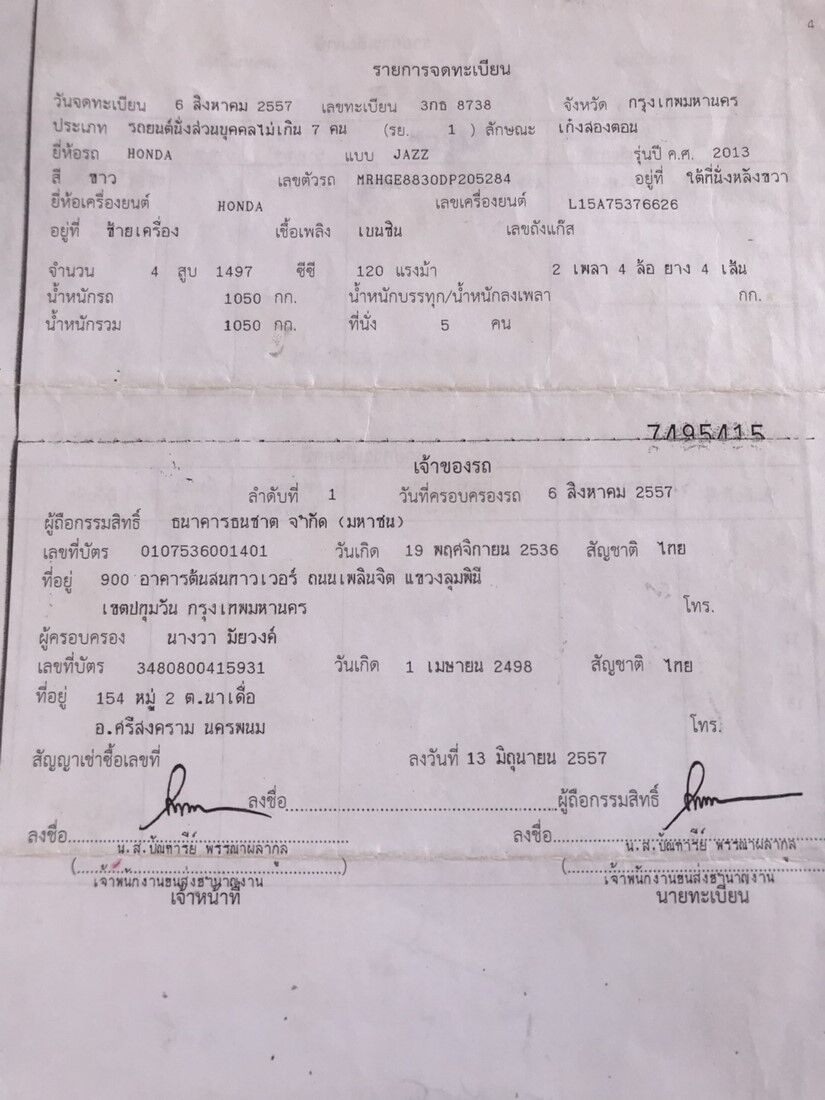 4
รายการจดทะเบียน
วันจดทะเบียน 6 สิงหาคม 2557 เลขทะเบียน 3กธ 8738 จังหวัด กรุงเทพมหานคร
ประเภท รถยนต์นั่งส่วนบุคคลไม่เกิน 7 คน (รย. 1 ) ลักษณะ เก๋งสองตอน
ยี่ห้อรถ HONDA แบบ JAZZ รุ่นปี ค.ศ. 2013
สี ขาว เลขตัวรถ MRHGE8830DP205284 อยู่ที่ ใต้ที่นั่งหลังขวา
ยี่ห้อเครื่องยนต์ HONDA เลขเครื่องยนต์ L15A75376626
อยู่ที่ ซ้ายเครื่อง เชื้อเพลิง เบนซิน เลขถังแก๊ส
จำนวน 4 สูบ 1497 ซีซี 120 แรงม้า 2 เพลา 4 ล้อ ยาง 4 เส้น
น้ำหนักรถ 1050 กก. น้ำหนักบรรทุก/น้ำหนักลงเพลา กก.
น้ำหนักรวม 1050 กก. ที่นั่ง 5 คน
7195415
เจ้าของรถ
ลำดับที่ 1 วันที่ครอบครองรถ 6 สิงหาคม 2557
ผู้ถือกรรมสิทธิ์ ธนาคารธนชาต จำกัด (มหาชน)
เลขที่บัตร 0107536001401 วันเกิด 19 พฤศจิกายน 2536 สัญชาติ ไทย
ที่อยู่ 900 อาคารต้นสนทาวเวอร์ ถนนเพลินจิต แขวงลุมพินี
เขตปทุมวัน กรุงเทพมหานคร โทร.
ผู้ครอบครอง นางวา มัยวงค์
เลขที่บัตร 3480800415931 วันเกิด 1 เมษายน 2498 สัญชาติ ไทย
ที่อยู่ 154 หมู่ 2 ต.นาเดื่อ
อ.ศรีสงคราม นครพนม โทร.
สัญญาเช่าซื้อเลขที่ ลงวันที่ 13 มิถุนายน 2557
ลงชื่อ ผู้ถือกรรมสิทธิ์
ลงชื่อ ลงชื่อ
น.ส.บัณฑารีย์ พรรณาผลากูล น.ส.บัณฑารีย์ พรรณาผลากูล
เจ้าพนักงานขนส่งชำนาญงาน เจ้าพนักงานขนส่งชำนาญงาน
เจ้าหน้าที่ นายทะเบียน